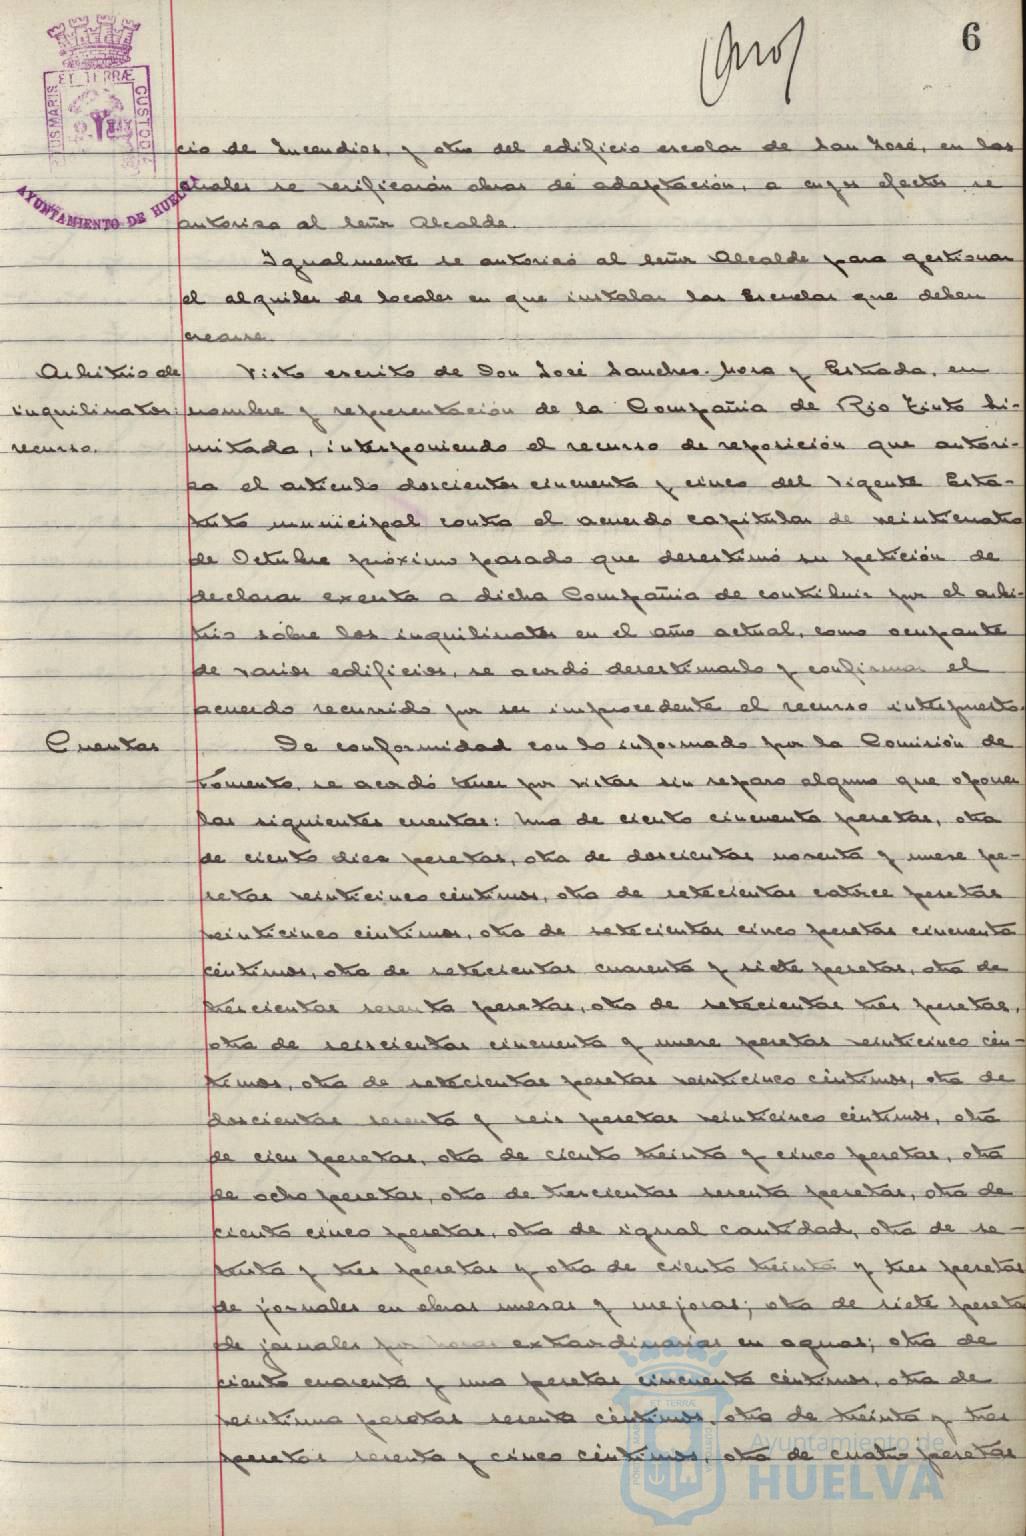 6
PORTUS MARIS ET TERRÆ CUSTODIA
AYUNTAMIENTO DE HUELVA
cio de Incendios, y otro del edificio escolar de San José, en los
cuales se verificarán obras de adaptación, a cuyos efectos se
autoriza al Señor Alcalde.
Igualmente se autorizó al Señor Alcalde para gestionar
el alquiler de locales en que instalar las Escuelas que deben
crearse.
Arbitrio de
inquilinatos:
recurso.
Visto escrito de Don José Sanchez-Mora y Estrada, en
nombre y representación de la Compañia de Rio Tinto Li-
mitada, interponiendo el recurso de reposición que autori-
za el artículo doscientos cincuenta y cinco del vigente Esta-
tuto municipal contra el acuerdo capitular de veinticuatro
de Octubre próximo pasado que desestimó su petición de
declarar exenta a dicha Compañia de contribuir por el arbi-
trio sobre los inquilinatos en el año actual, como ocupante
de varios edificios, se acordó desestimarlo y confirmar el
acuerdo recurrido por ser improcedente el recurso interpuesto.
Cuentas
De conformidad con lo informado por la Comisión de
Fomento, se acordó tener por vistas sin reparo alguno que oponer
las siguientes cuentas: Una de ciento cincuenta pesetas, otra
de ciento diez pesetas, otra de doscientas noventa y nueve pe-
setas veinticinco céntimos, otra de setecientas catorce pesetas
veinticinco céntimos, otra de setecientas cinco pesetas cincuenta
céntimos, otra de setecientas cuarenta y siete pesetas, otra de
trescientas sesenta pesetas, otra de setecientas tres pesetas,
otra de seiscientas cincuenta y nueve pesetas veinticinco cén-
timos, otra de setecientas pesetas veinticinco céntimos, otra de
doscientas sesenta y seis pesetas veinticinco céntimos, otra
de cien pesetas, otra de ciento treinta y cinco pesetas, otra
de ocho pesetas, otra de trescientas sesenta pesetas, otra de
ciento cinco pesetas, otra de igual cantidad, otra de se-
tenta y tres pesetas y otra de ciento treinta y tres pesetas
de jornales en obras nuevas y mejoras; otra de siete pesetas
de jornales por horas extraordinarias en aguas; otra de
ciento cuarenta y una pesetas cincuenta céntimos, otra de
veintiuna pesetas sesenta céntimos, otra de treinta y tres
pesetas sesenta y cinco céntimos, otra de cuatro pesetas
Ayuntamiento de
HUELVA